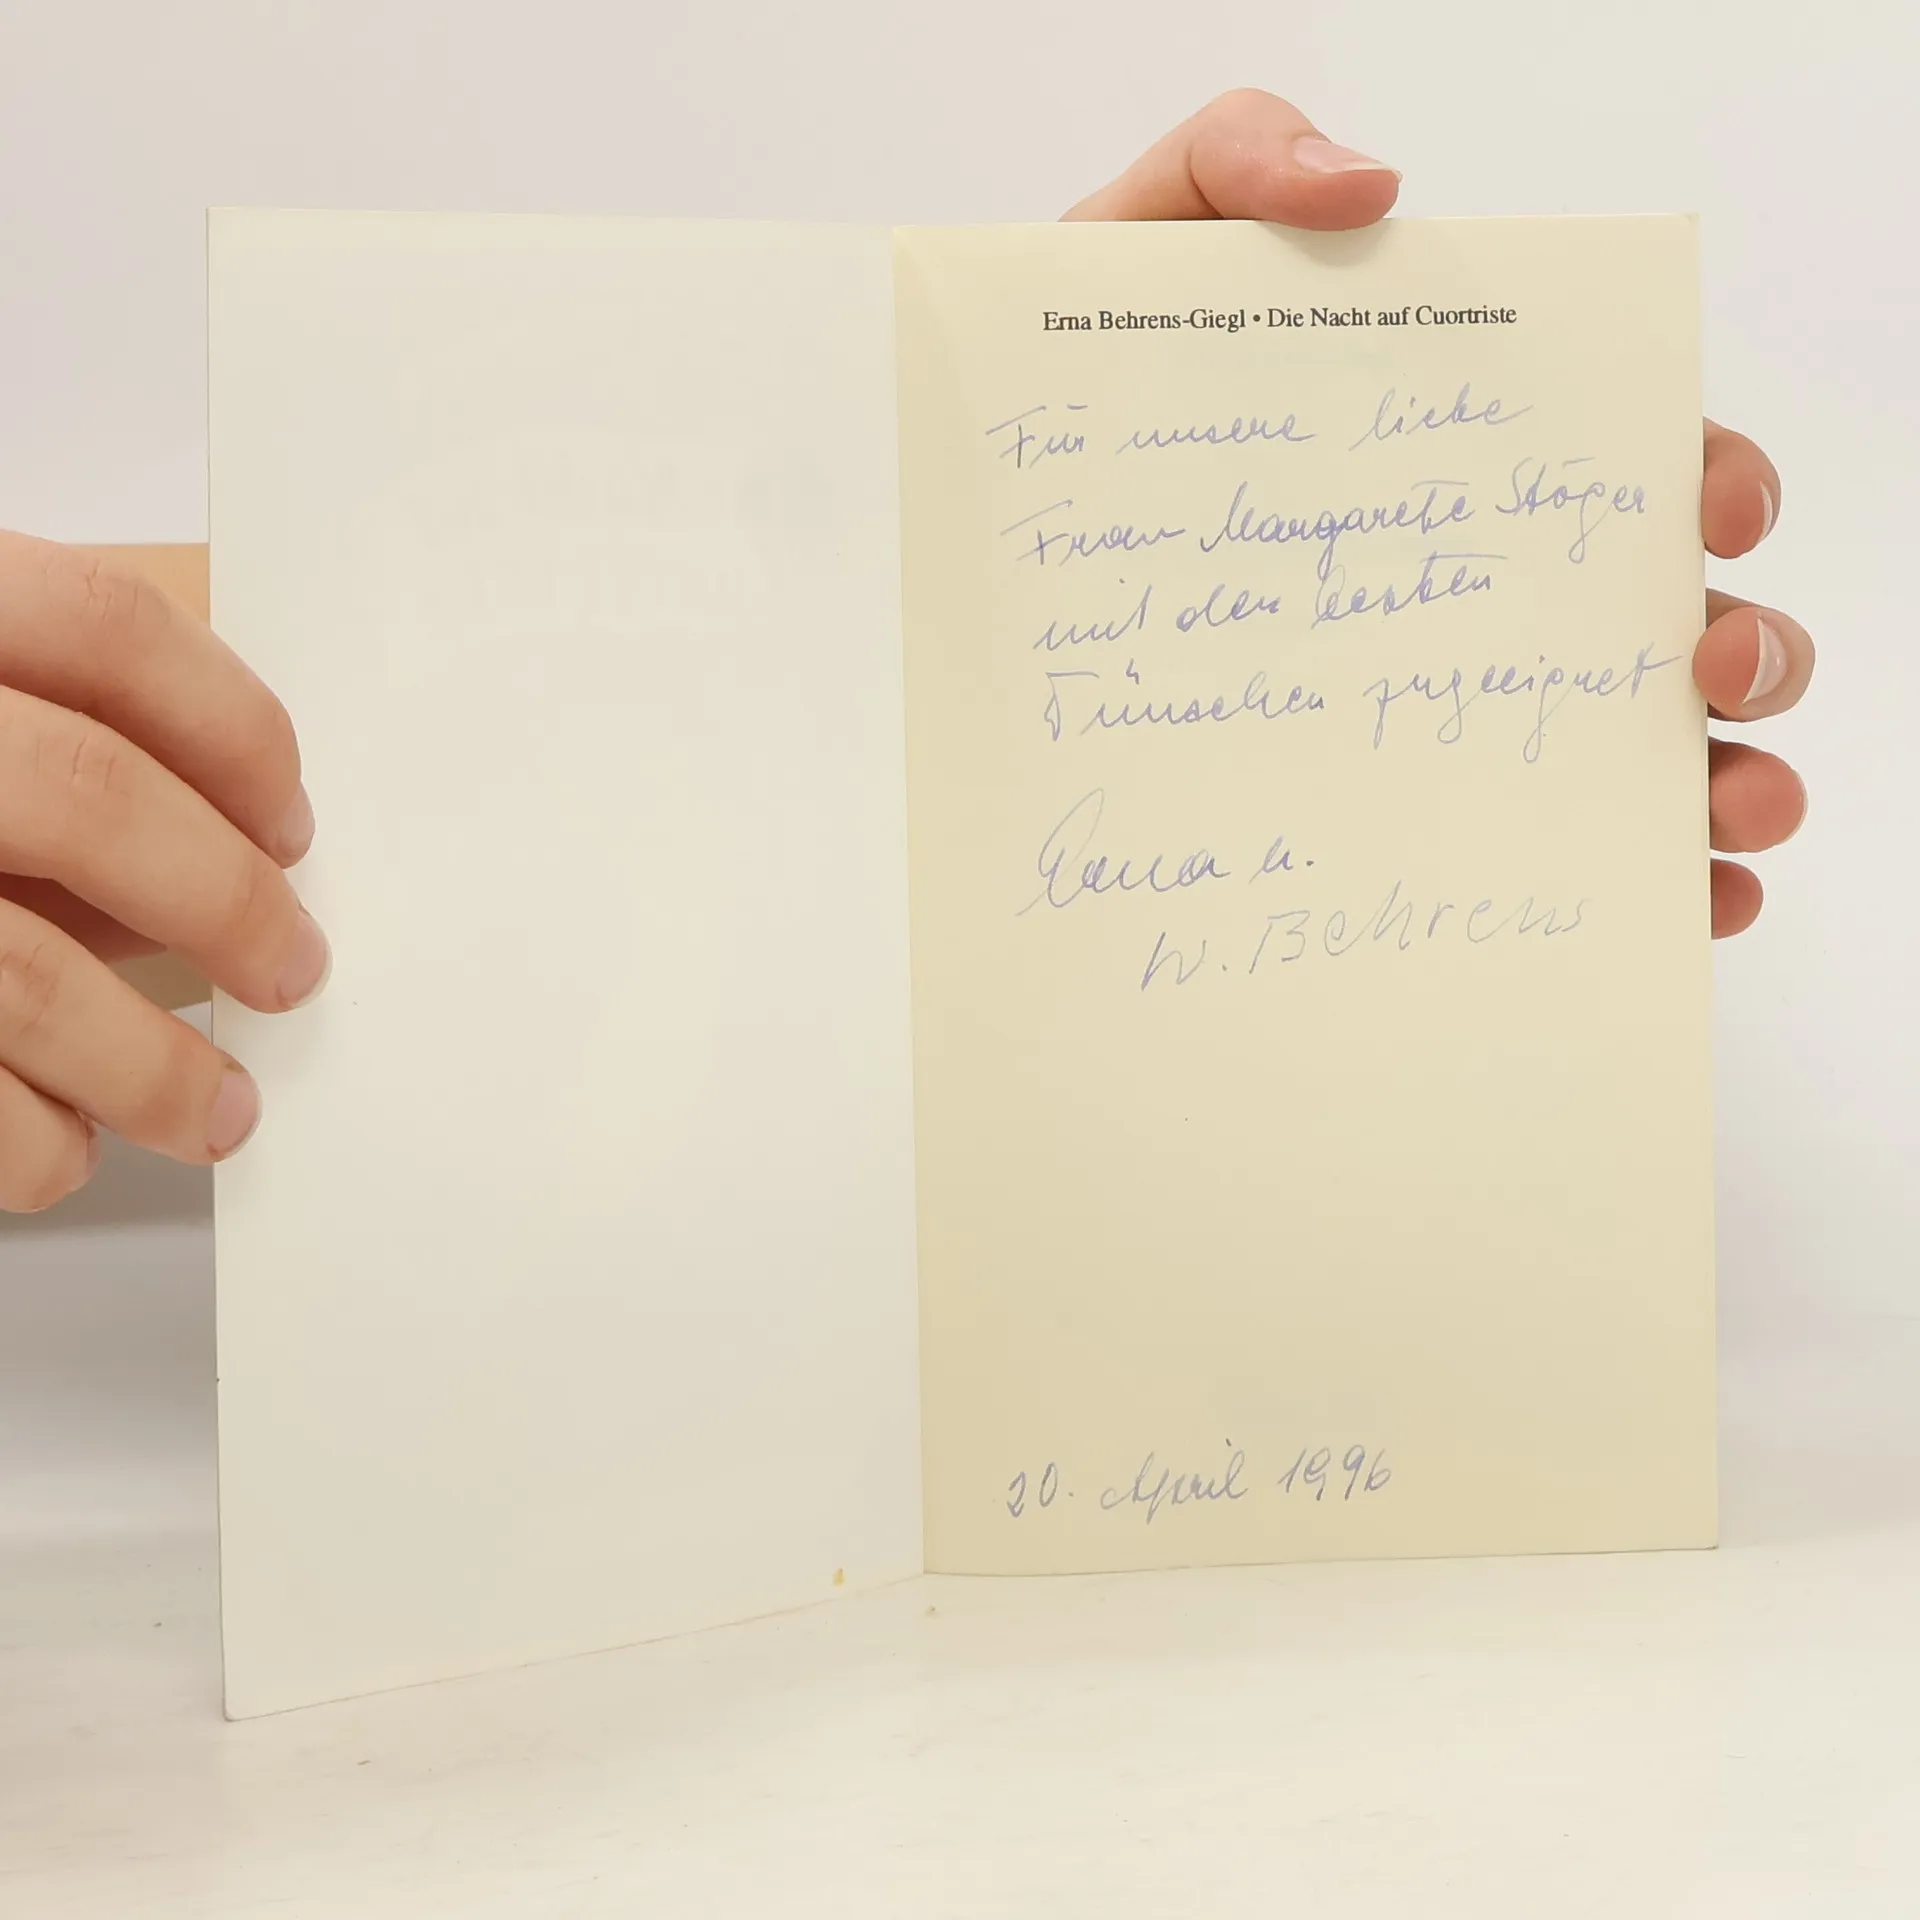 Erna Behrens-Giegl • Die Nacht auf Cuortriste
Für unsere liebe
Frau Margarete Stöger
mit den besten
Wünschen zugeeignet
Erna u.
W. Behrens
20. April 1996